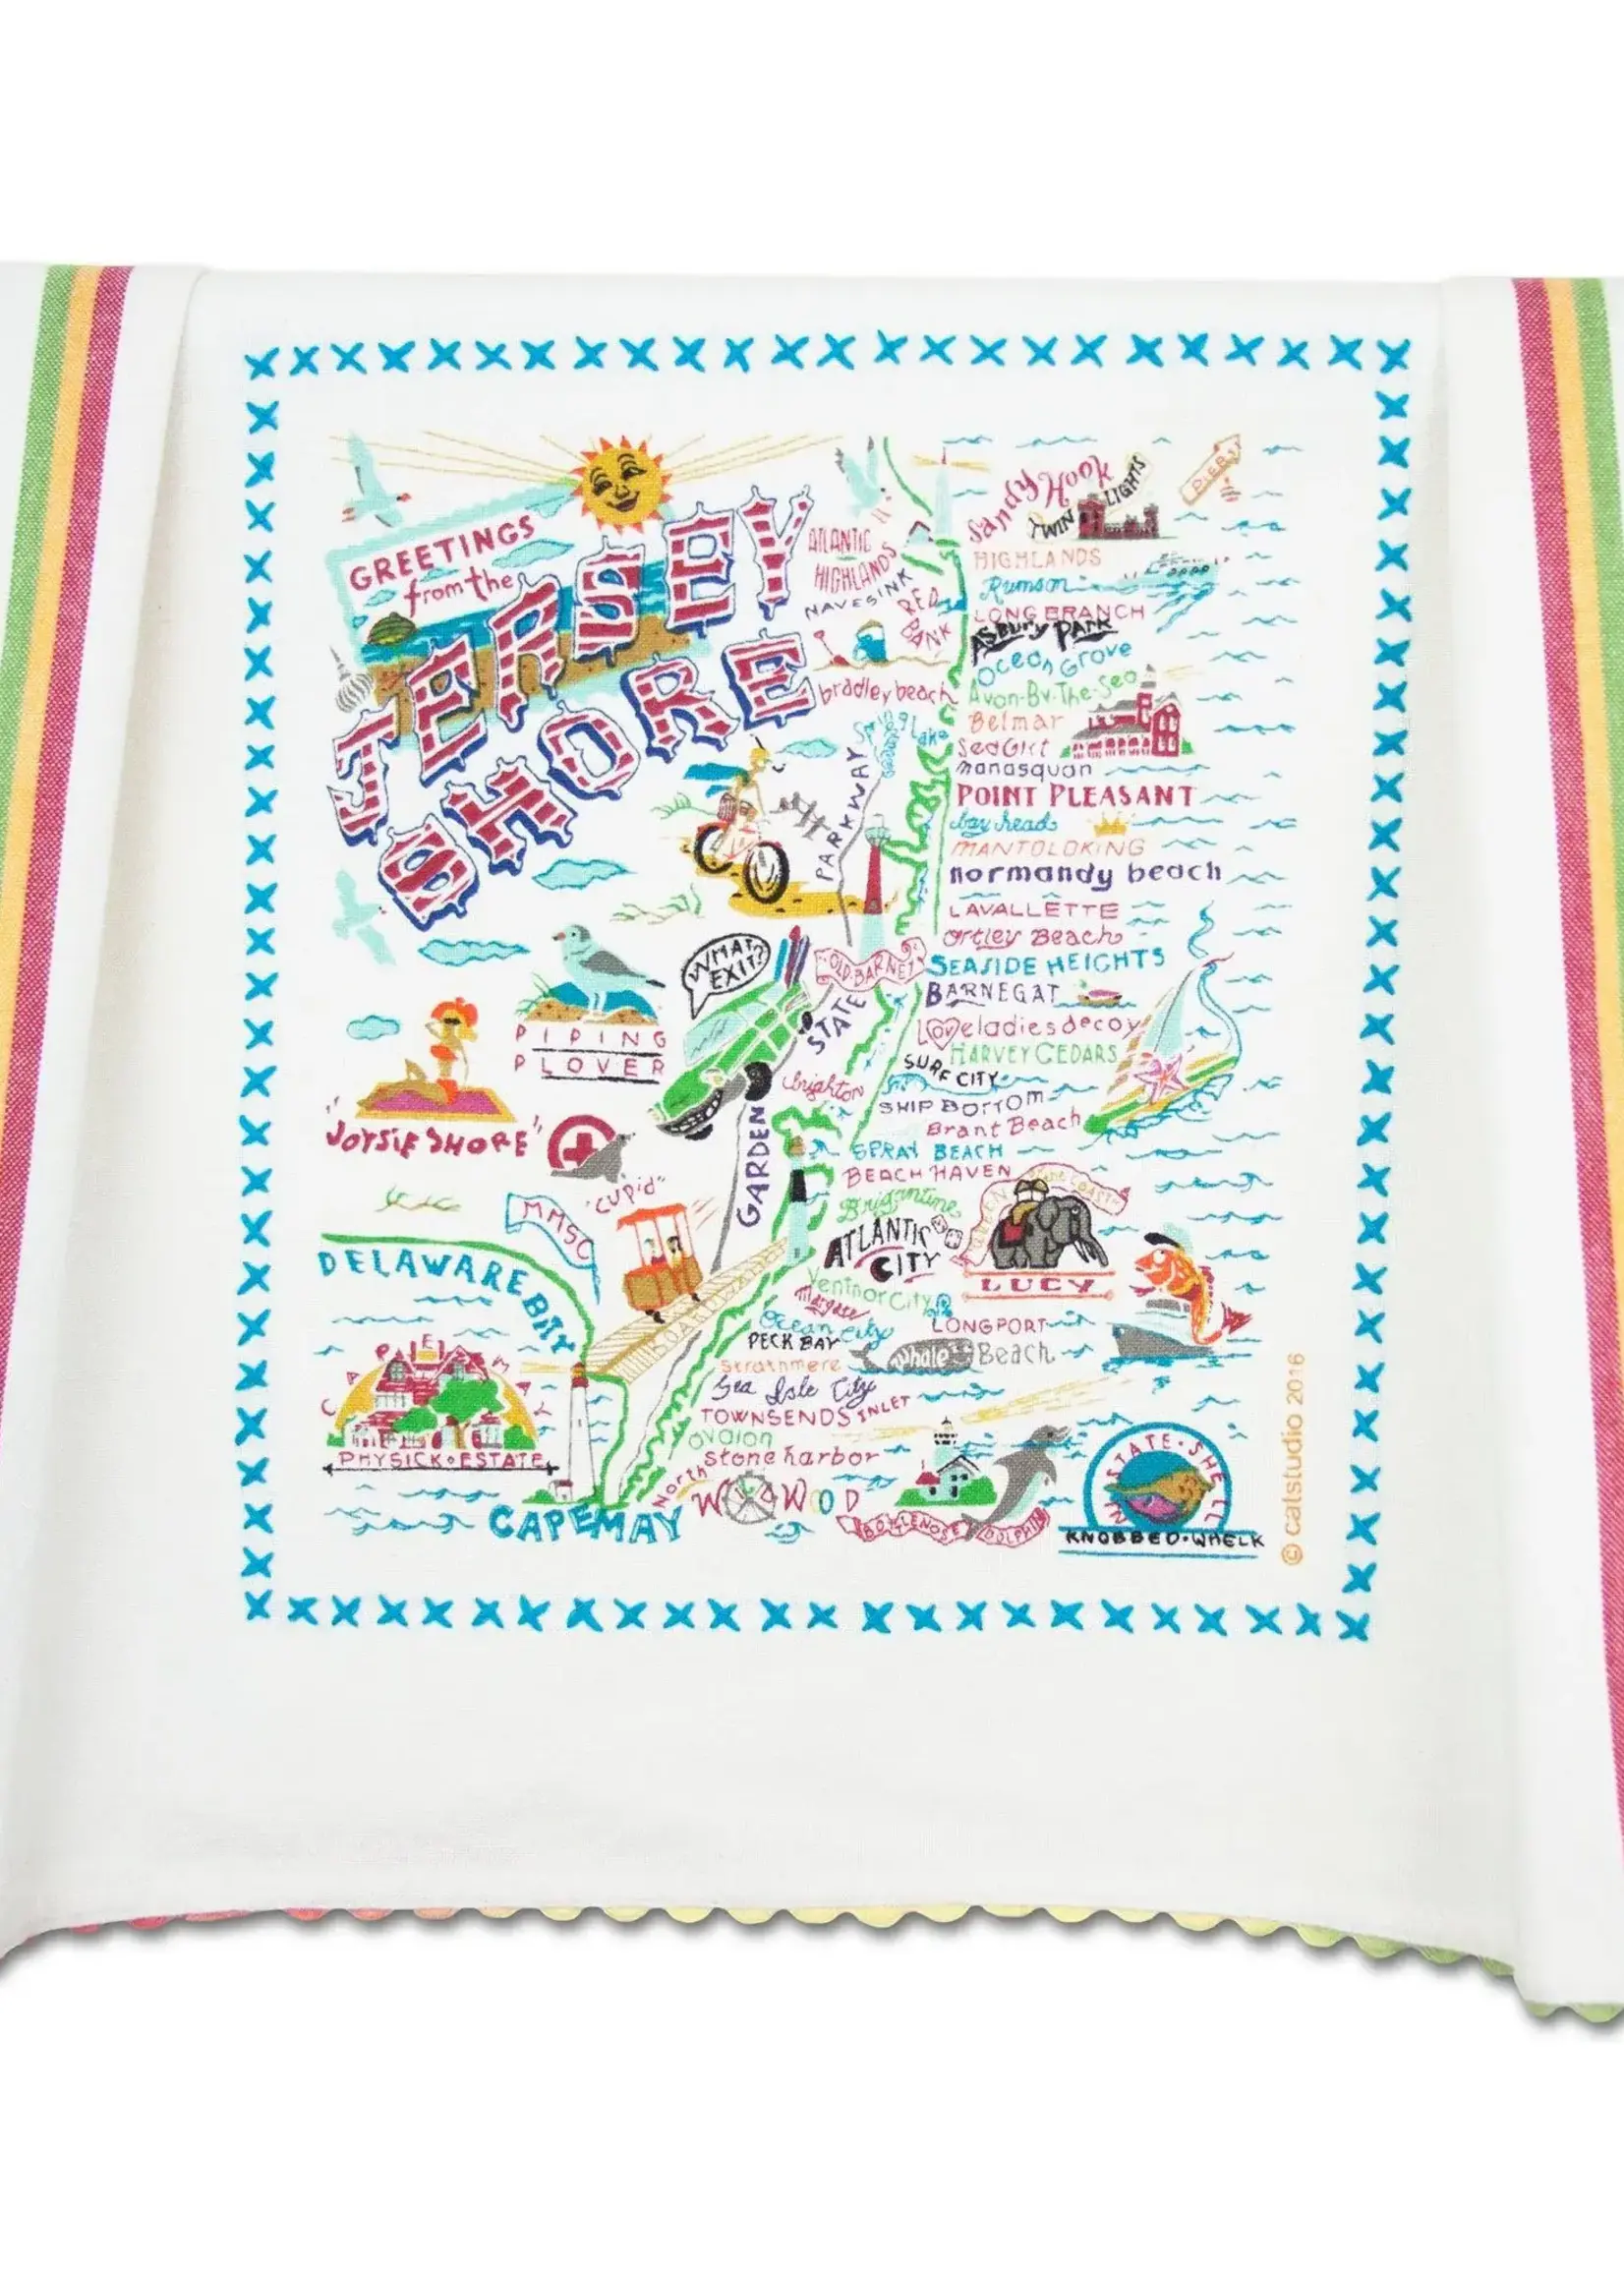 GREETINGS
from the
JERSEY
SHORE
ATLANTIC
HIGHLANDS
NAVESINK
RED
BANK
Sandy Hook
TWIN LIGHTS
HIGHLANDS
Rumson
LONG BRANCH
ASBURY PARK
Ocean Grove
Avon-By-The-Sea
bradley beach
Belmar
Spring Lake
Sea Girt
manasquan
POINT PLEASANT
bay head
MANTOLOKING
normandy beach
LAVALLETTE
ortley Beach
SEASIDE HEIGHTS
BARNEGAT
Loveladiesdecoy
HARVEY CEDARS
SURF CITY
SHIP BOTTOM
Brant Beach
SPRAY BEACH
BEACH HAVEN
Brigantine
ATLANTIC
CITY
Ventnor City
Margate
LUCY
LONGPORT
Ocean City
PECK BAY
Whale Beach
Strathmere
Sea Isle City
TOWNSENDS INLET
avalon
stone harbor
North
WILDWOOD
CAPE MAY
GARDEN
STATE
PARKWAY
OLD BARNEY
brighton
WHAT
EXIT?
PIPING
PLOVER
"JOYSIE SHORE"
MMSC
"CUPID"
DELAWARE BAY
BOARDWALK
CAPE MAY
PHYSICK ESTATE
BOTTLENOSE DOLPHIN
STATE SHELL
KNOBBED WHELK
© catstudio 2016